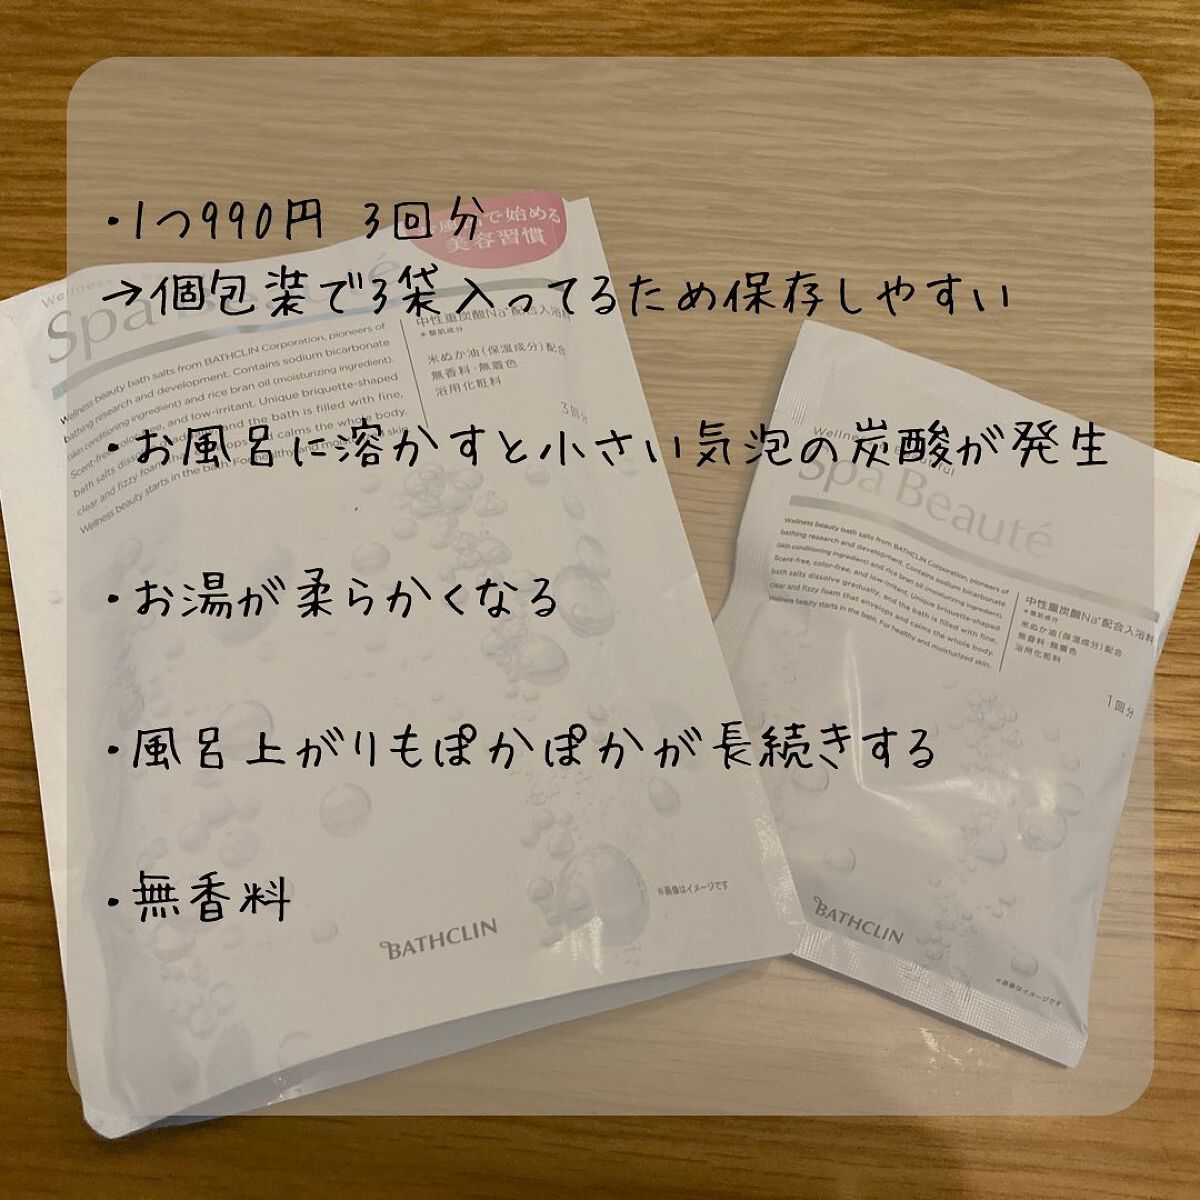 ・1つ990円 3回分
→個包装で3袋入ってるため保存しやすい
・お風呂に溶かすと小さい気泡の炭酸が発生
・お湯が柔らかくなる
・風呂上がりもぽかぽかが長続きする
・無香料
風呂で始める
美容習慣
Spa
中性重炭酸Na*配合入浴料
*整肌成分
米ぬか油(保湿成分)配合
無香料・無着色
浴用化粧料
3回分
Wellness beauty bath salts from BATHCLIN Corporation, pioneers of
bathing research and development. Contains sodium bicarbonate
(skin conditioning ingredient) and rice bran oil (moisturizing ingredient).
and low-irritant. Unique briquette-shaped
and the bath is filled with fine,
calms the whole body.
Wellness beauty starts in the bath. For healthy and moisturized skin.
※画像はイメージです
BATHCLIN
Spa Beauté
Wellness beauty bath salts from BATHCLIN Corporation, pioneers of
bathing research and development. Contains sodium bicarbonate
(skin conditioning ingredient) and rice bran oil (moisturizing ingredient).
Scent-free, color-free, and low-irritant. Unique briquette-shaped
bath salts dissolve gradually, and the bath is filled with fine,
clear and fizzy foam that envelops and calms the whole body.
Wellness beauty starts in the bath. For healthy and moisturized skin.
中性重炭酸Na*配合入浴料
*整肌成分
米ぬか油(保湿成分)配合
無香料・無着色
浴用化粧料
1回分
BATHCLIN
※画像はイメージです